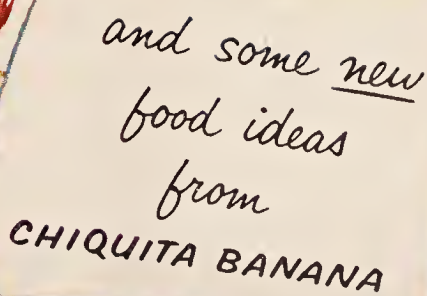 and some new
food ideas
from
CHIQUITA BANANA